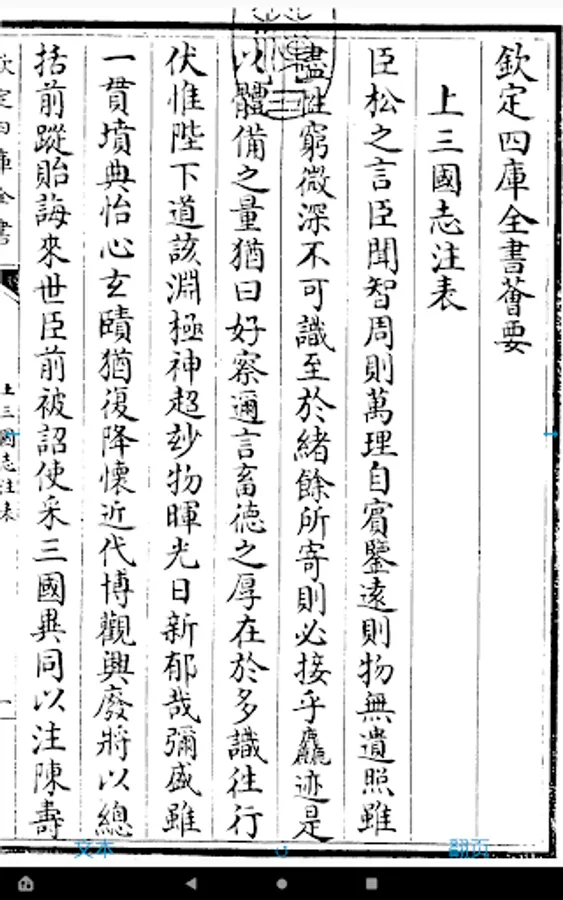 欽定四庫全書薈要
上三國志注表
臣松之言臣聞智周則萬理自賓鑒遠則物無遺照雖
盡性窮微深不可識至於緒餘所寄則必接乎麤迹是
以體備之量猶曰好察邇言畜德之厚在於多識往行
伏惟陛下道該淵極神超玅物暉光日新郁哉彌盛雖
一貫墳典怡心玄賾猶復降懷近代博觀興廢將以總
括前蹤貽誨來世臣前被詔使采三國異同以注陳壽
欽定四庫全書
上三國志注表
一
文本
翻页